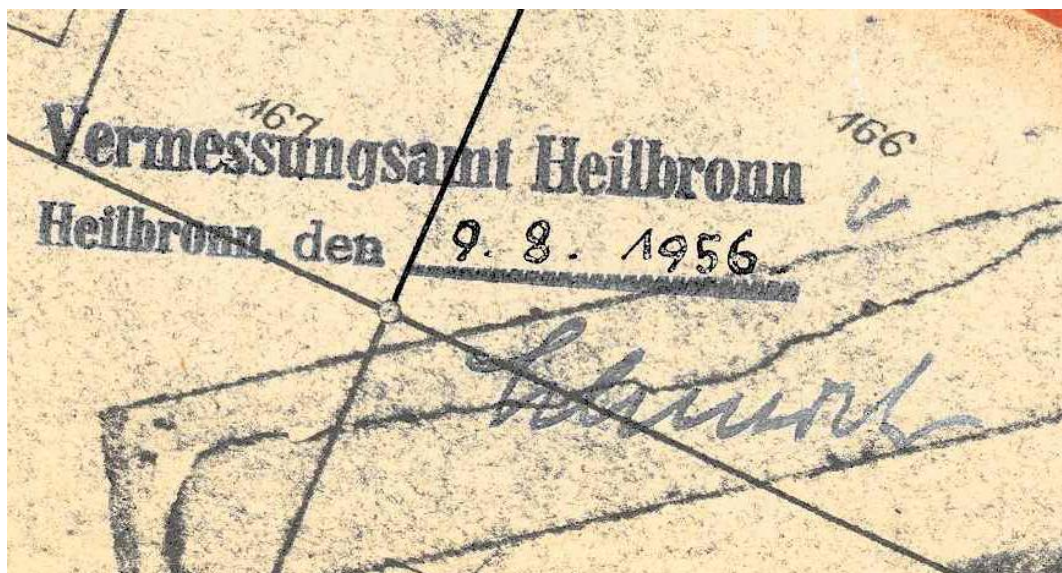 167
166
Vermessungsamt Heilbronn
Heilbronn, den 9. 8. 1956